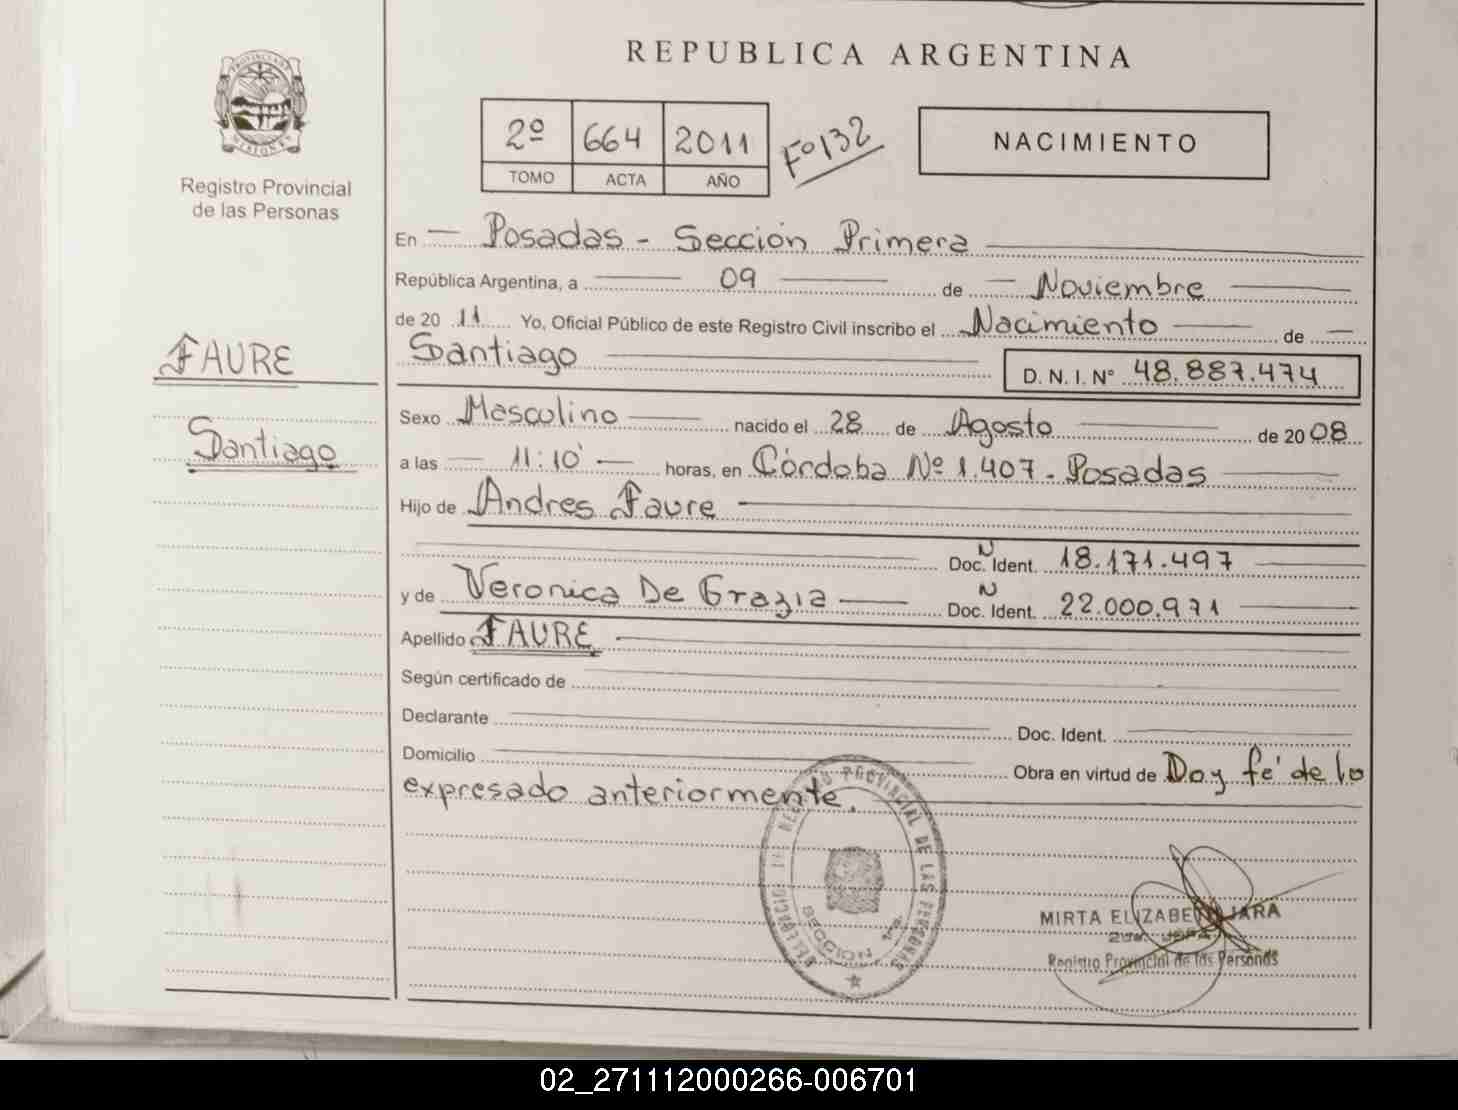 REPUBLICA ARGENTINA
2º 664 2011 Fº132
TOMO ACTA AÑO
NACIMIENTO
Registro Provincial
de las Personas
FAURE
Santiago
En Posadas - Sección Primera
República Argentina, a 09 de Noviembre
de 20 11 Yo, Oficial Público de este Registro Civil inscribo el Nacimiento de
Santiago D. N. I. Nº 48.887.474
Sexo Masculino nacido el 28 de Agosto de 20 08
a las 11:10 horas, en Córdoba Nº 1.407 - Posadas
Hijo de Andres Faure
Doc. N Ident. 18.171.497
y de Veronica De Grazia Doc. N Ident. 22.000.971
Apellido FAURE
Según certificado de
Declarante Doc. Ident.
Domicilio Obra en virtud de Doy fé de lo
expresado anteriormente.
REGISTRO PROVINCIAL DE LAS PERSONAS
SECCION 1ra.
MIRTA ELIZABETH JARA
JEFA
Registro Provincial de las Personas
02_271112000266-006701